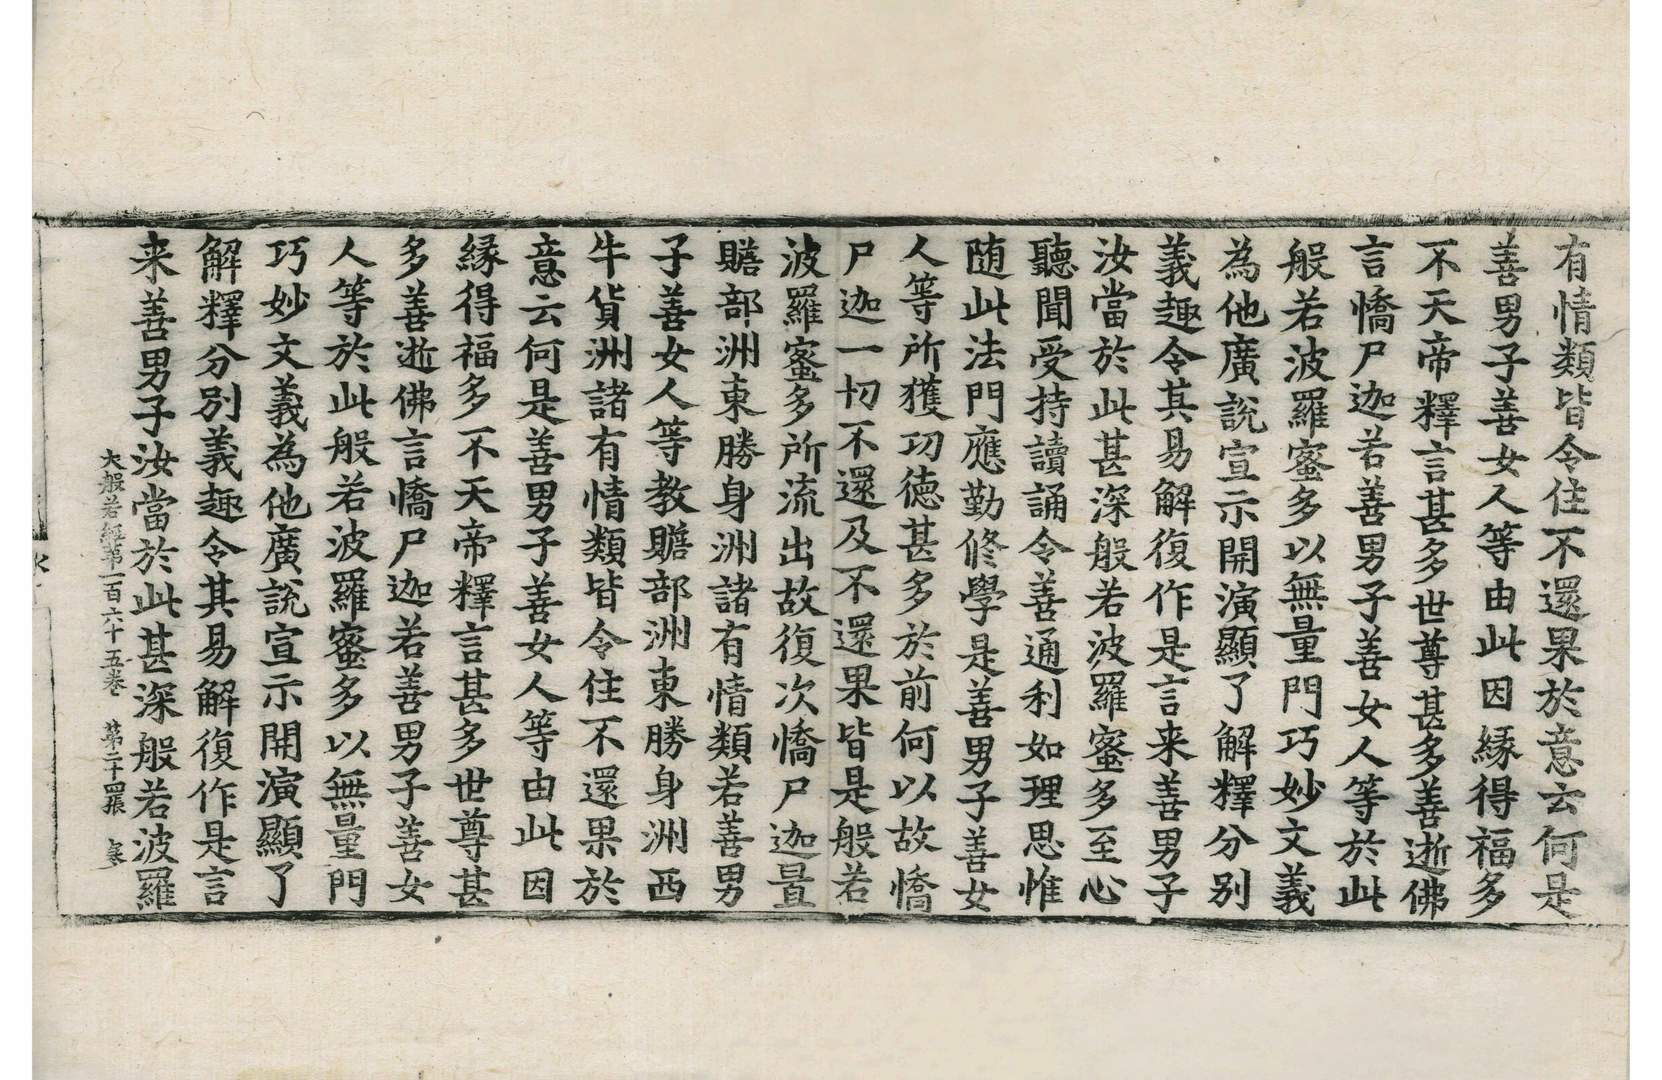 有情類皆令住不還果於意云何是
善男子善女人等由此因緣得福多
不天帝釋言甚多世尊甚多善逝佛
言憍尸迦若善男子善女人等於此
般若波羅蜜多以無量門巧妙文義
為他廣說宣示開演顯了解釋分別
義趣令其易解復作是言来善男子
汝當於此甚深般若波羅蜜多至心
聽聞受持讀誦令善通利如理思惟
随此法門應勤修學是善男子善女
人等所獲功德甚多於前何以故憍
尸迦一切不還及不還果皆是般若
波羅蜜多所流出故復次憍尸迦置
贍部洲東勝身洲諸有情類若善男
子善女人等教贍部洲東勝身洲西
牛貨洲諸有情類皆令住不還果於
意云何是善男子善女人等由此因
緣得福多不天帝釋言甚多世尊甚
多善逝佛言憍尸迦若善男子善女
人等於此般若波羅蜜多以無量門
巧妙文義為他廣說宣示開演顯了
解釋分別義趣令其易解復作是言
来善男子汝當於此甚深般若波羅
大般若經第一百六十五卷 第二十四張